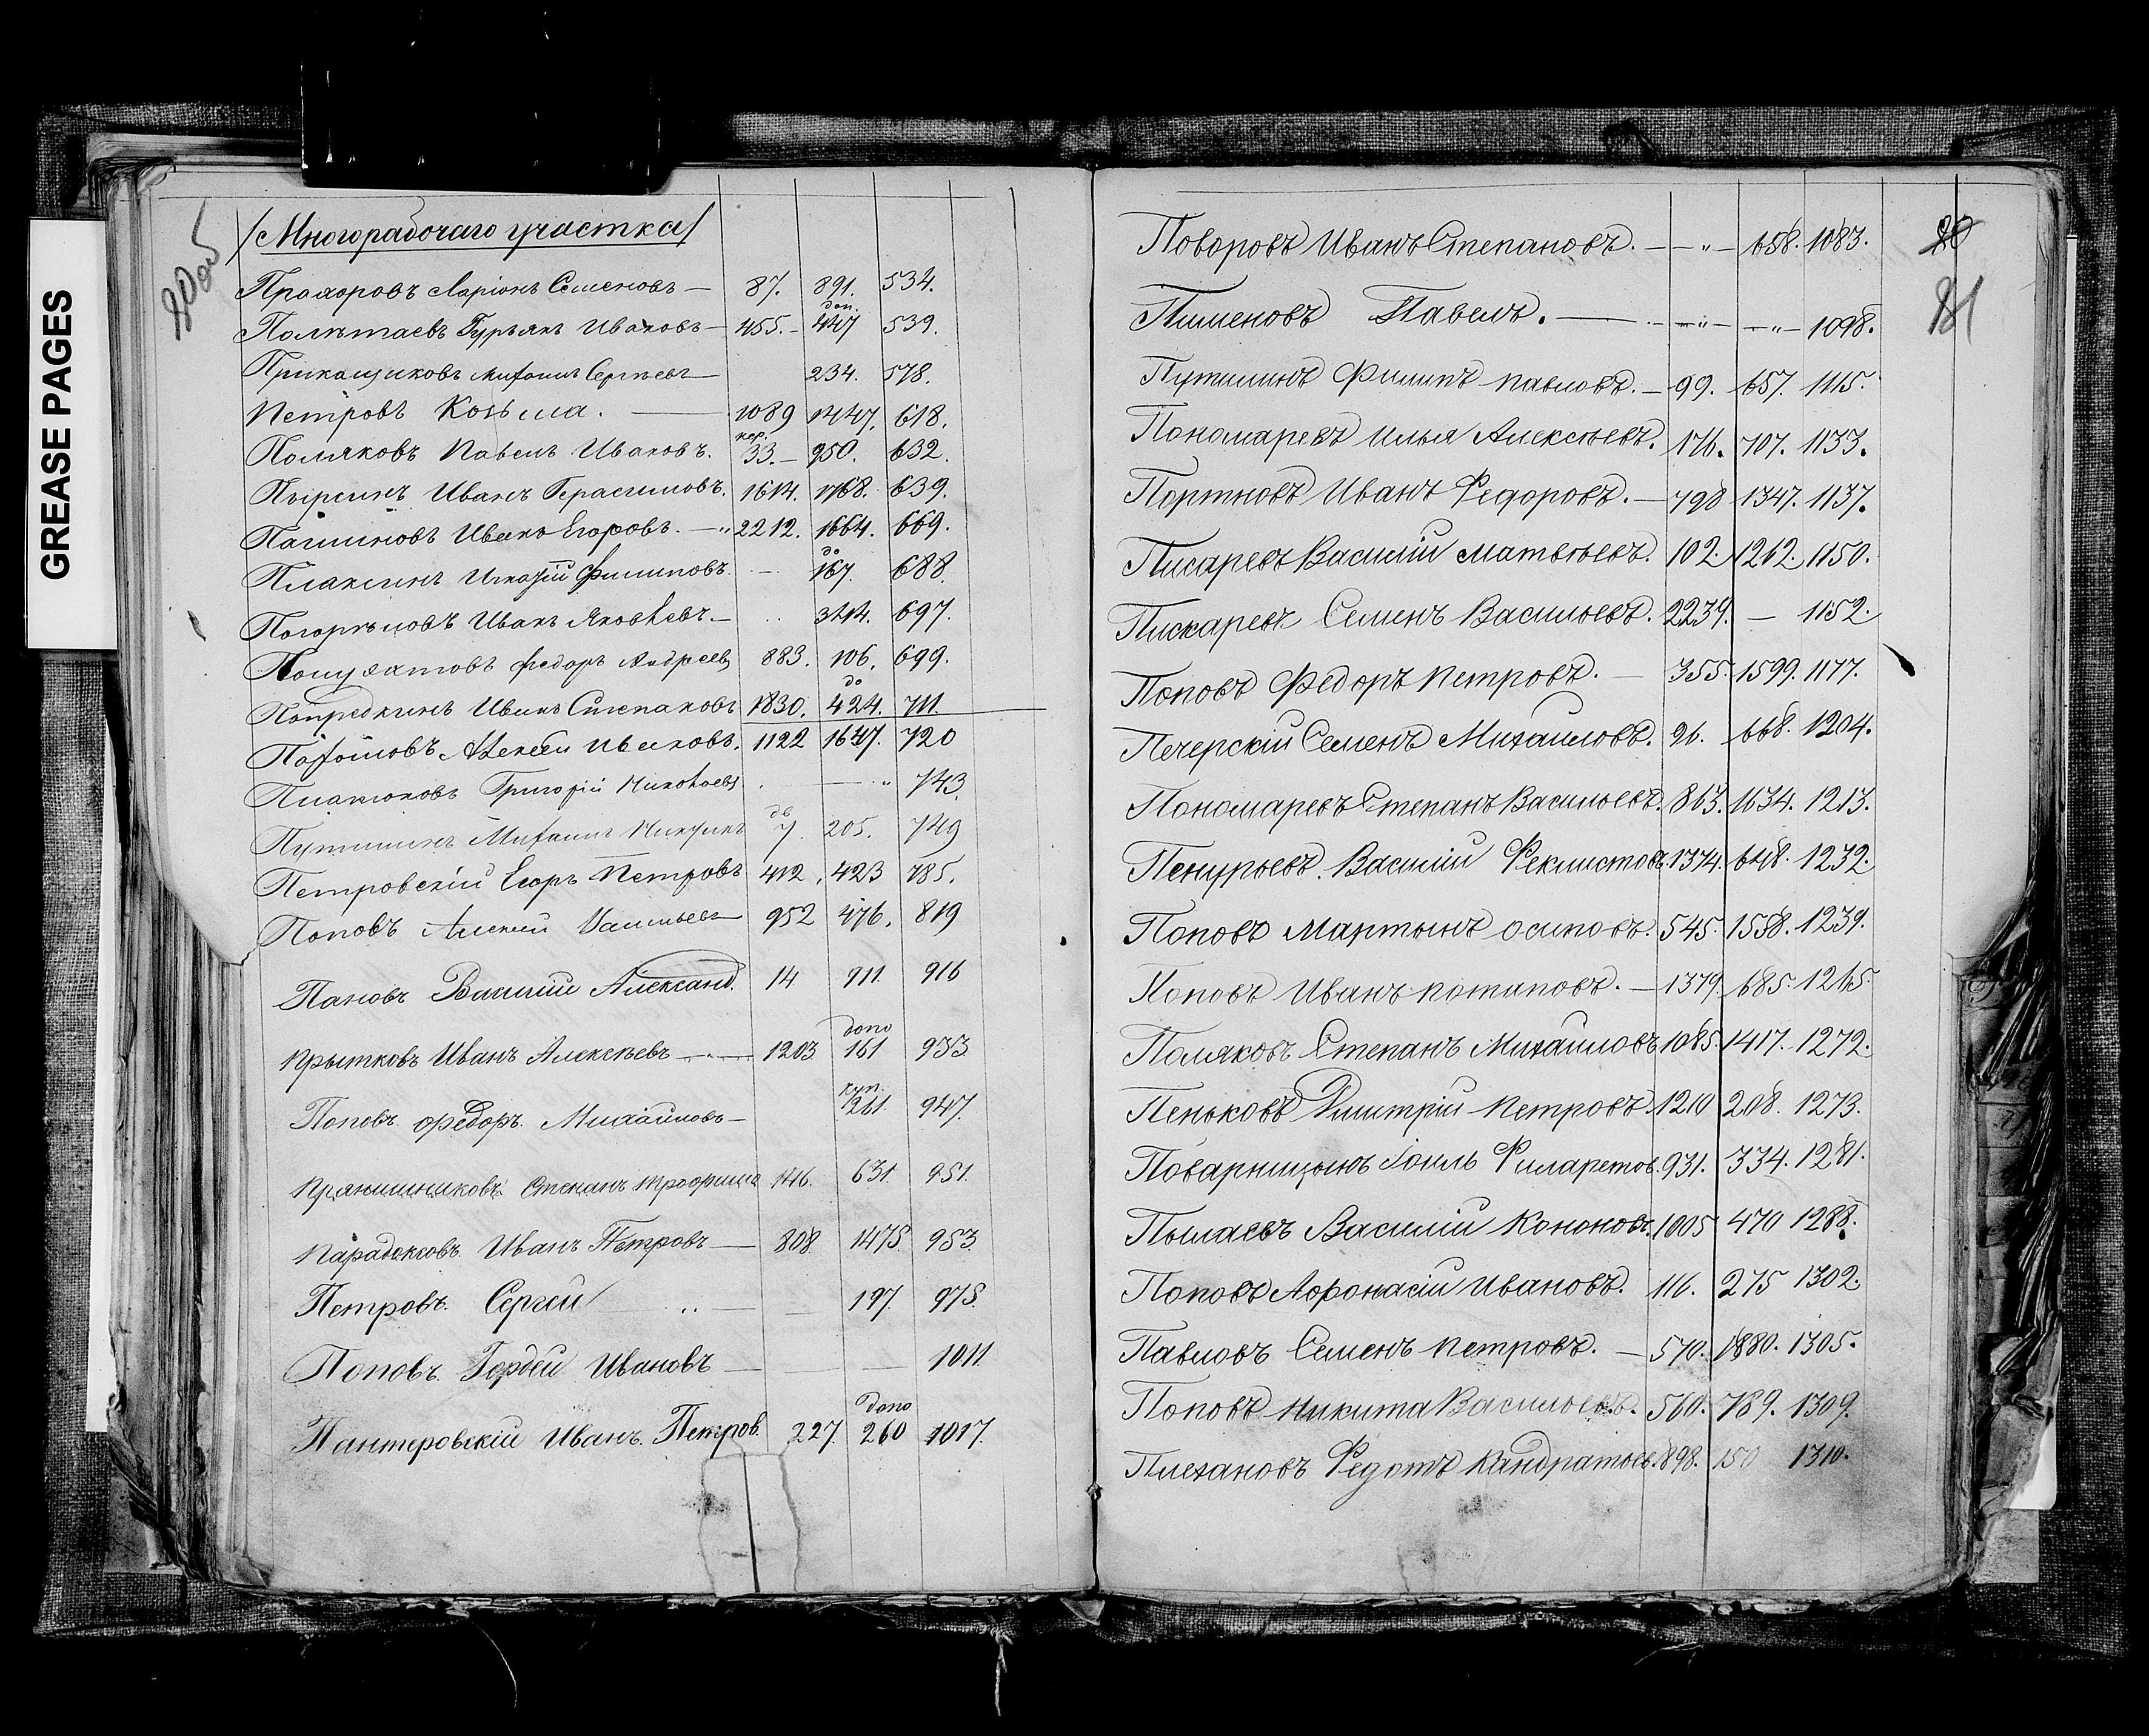 GREASE PAGES
/Многорабочаго участка/
Прахоровъ Ларіонъ Семеновъ — 87. 891. 534.
доп.
Полѣтаевъ Гурьянъ Ивановъ — 455. — 447 539.
Прикащиковъ Михаилъ Сергѣевъ — 234. 578.
Петровъ Козьма. — 1089 1447. 618.
кер.
Поляковъ Павелъ Ивановъ. 33. — 950. 632.
Пырсинъ Иванъ Герасимовъ. 1614. 1768. 639.
Пашиновъ Иванъ Егоровъ. — " 2212. 1664. 669.
до
Плаксинъ Филиповъ. — 167. 688.
Погорѣловъ Иванъ Яковлевъ — .. 697.
Полуяхтовъ Федоръ Андреевъ 883. 106. 699.
до
Попредкинъ Иванъ Степановъ 1830. 424. 711.
Пахомовъ Алексѣй Ивановъ. 1122 1647. 720
Григорій Николаевъ . — " 743.
Путилинъ Михаилъ 7. 205. 749
Петровскій Егоръ Петровъ 412. 423 785.
Поповъ Алексѣй Васильевъ 952 476. 819
Пановъ Василій Александ. 14 911. 916
допо
Прытковъ Иванъ Алексѣевъ — " — 1203 161 933
куп.
Поповъ Федоръ Михайловъ — 261 947.
Прянишниковъ Степанъ Трофимов 146. 631 951.
Парадоксовъ Иванъ Петровъ — 808 1475 953.
Петровъ. Сергей .. — — 197 975.
Поповъ. Гордей Ивановъ — — — 1011
допо
Пантеровскій Иванъ. Петров. 227. 260 1017.
80
81
Поворовъ Иванъ Степановъ. — " — 658. 1083.
Пименовъ Павелъ. — — " — — " — 1098.
Путилинъ Филипъ Павловъ. — 99. 657. 1115.
Пономаревъ Илья Алексѣевъ. 176. 707. 1133.
Портновъ Иванъ Федоровъ. — 798 1347. 1137.
Писаревъ Василій Матвѣевъ. 102. 1262. 1150.
Пискаревъ Семенъ Васильевъ. 2239. — 1152.
Поповъ Федоръ Петровъ. — 355. 1599. 1177.
Печерскій Семенъ Михайловъ. 96. 668. 1204.
Пономаревъ Степанъ Васильевъ. 863. 1634. 1213.
Пенурьевъ. Василій Феклистовъ. 1374. 648. 1232.
Поповъ Мартынъ Осиповъ. 545. 1558. 1239.
Поповъ Иванъ Потаповъ. — 1379. 685. 1265.
Поляковъ Степанъ Михайловъ 1085. 1417. 1272.
Пеньковъ Димитрій Петровъ. 1210 208. 1273.
Поварницынъ Іоиль Филаретов. 931. 334. 1281.
Пылаевъ Василій Кононовъ. 1005 470 1288.
Поповъ Афонасій Ивановъ. 116. 275 1302.
Павловъ Семенъ Петровъ. — 570. 1880. 1305.
Поповъ Никита Васильевъ. 560. 789. 1309.
Плехановъ Федотъ Кандратьев. 898. 150 1310.